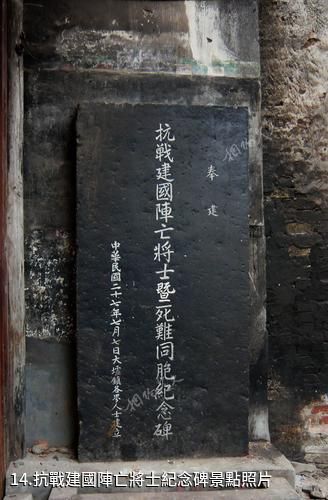 奉建
抗戰建國陣亡將士暨死難同胞紀念碑
中華民國二十七年七月七日大墟鎮各界人士建立
14.抗戰建國陣亡將士紀念碑景點照片